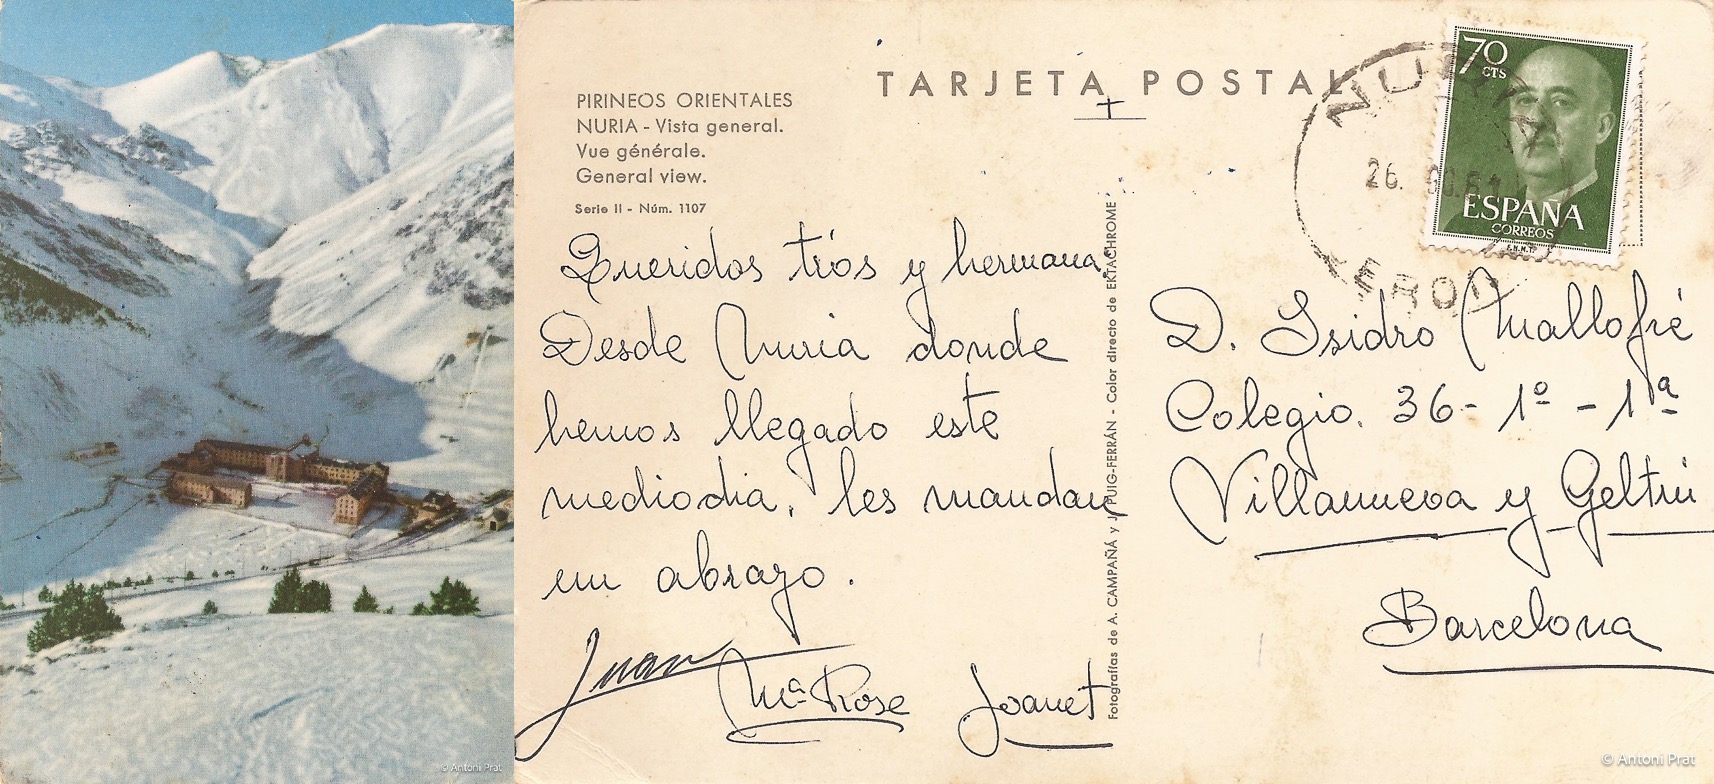 © Antoni Prat
PIRINEOS ORIENTALES
NURIA - Vista general.
Vue générale.
General view.
Serie II - Núm. 1107
TARJETA POSTAL
Queridos tíos y hermana,
Desde Nuria donde
hemos llegado este
mediodia, les mandan
un abrazo.
Juan
Mª Rose
Joanet
Fotografías de A. CAMPAÑÁ y J. PUIG-FERRÁN - Color directo de EKTACHROME
NURIA
26.
70
CTS
ESPAÑA
CORREOS
F.N.M.T.
D. Isidro Mallofré
Colegio. 36 - 1º - 1ª
Villanueva y Geltrú
Barcelona
© Antoni Prat